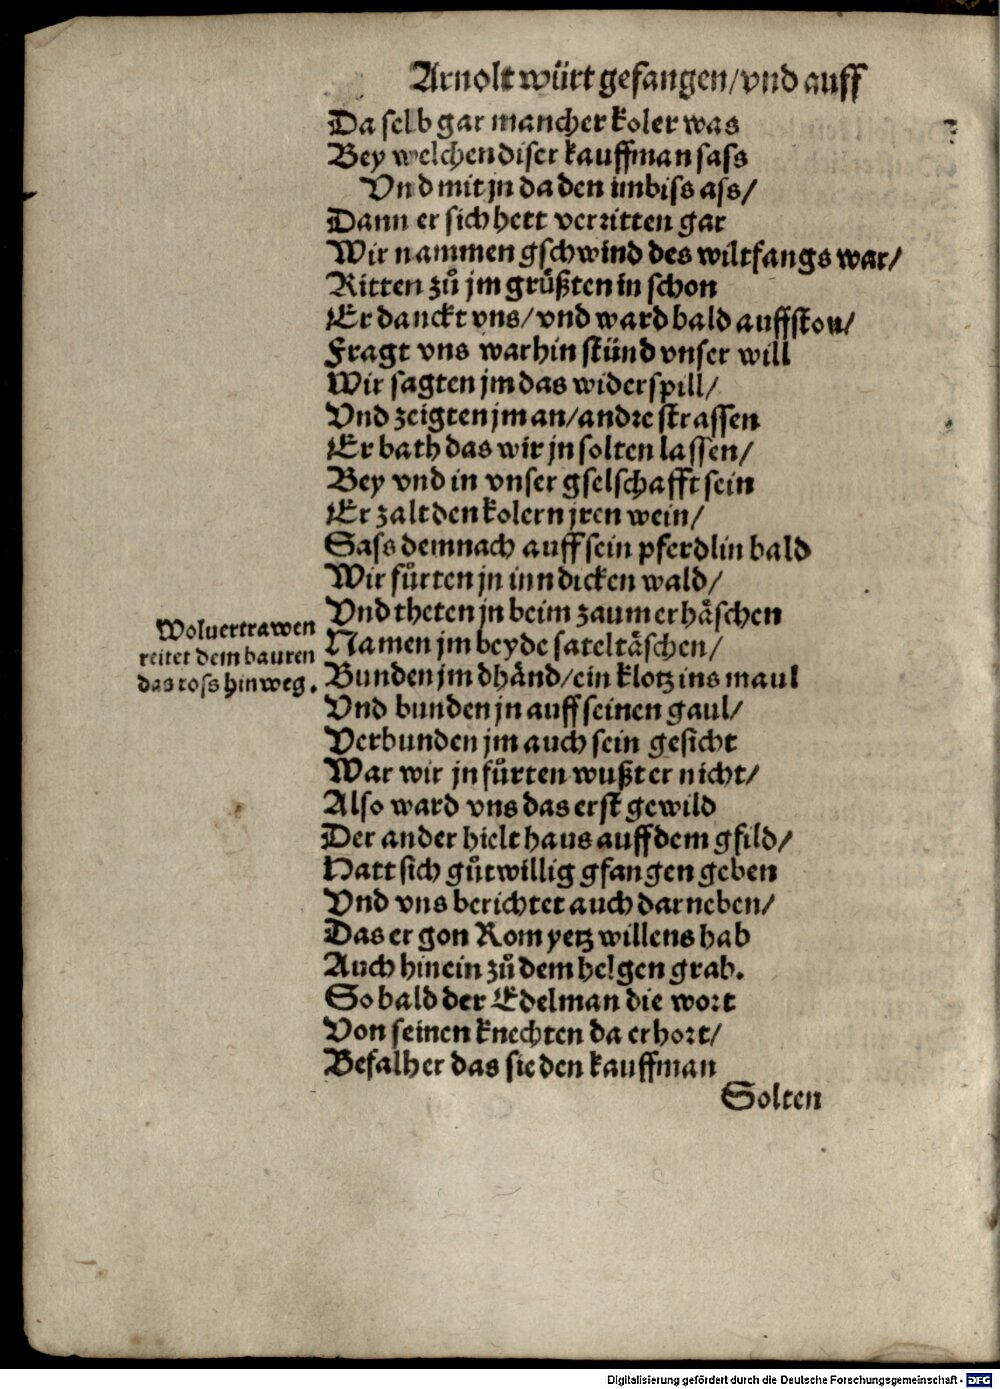 Arnolt würt gefangen/vnd auff
Da selb gar mancher koler was
Bey welchen diser kauffman sass
Vnd mit jn da den imbiss ass/
Dann er sich hett verritten gar
Wir nammen gschwind des wiltfangs war/
Ritten zů jm grüßten in schon
Er danckt vns/vnd ward bald auffston/
Fragt vns warhin stünd vnser will
Wir sagten jm das widerspill/
Vnd zeigten jm an/andre strassen
Er bath das wir jn solten lassen/
Bey vnd in vnser gselschafft sein
Er zalt den kolern jren wein/
Sass demnach auff sein pferdlin bald
Wir fůrten jn inn dicken wald/
Vnd theten jn beim zaum erhäschen
Wolvertrawen
reitet dem bauren
das ross hinweg.
Namen jm beyde sateltäschen/
Bunden jm dhänd/ein klotz ins maul
Vnd bunden jn auff seinen gaul/
Verbunden jm auch sein gesicht
War wir jn fůrten wußt er nicht/
Also ward vns das erst gewild
Der ander hielt haus auff dem gfild/
Hatt sich gůtwillig gfangen geben
Vnd vns berichtet auch darneben/
Das er gon Rom yetz willens hab
Auch hinein zů dem helgen grab.
So bald der Edelman die wort
Von seinen knechten da erhort/
Befalh er das sie den kauffman
Solten
Digitalisierung gefördert durch die Deutsche Forschungsgemeinschaft - DFG